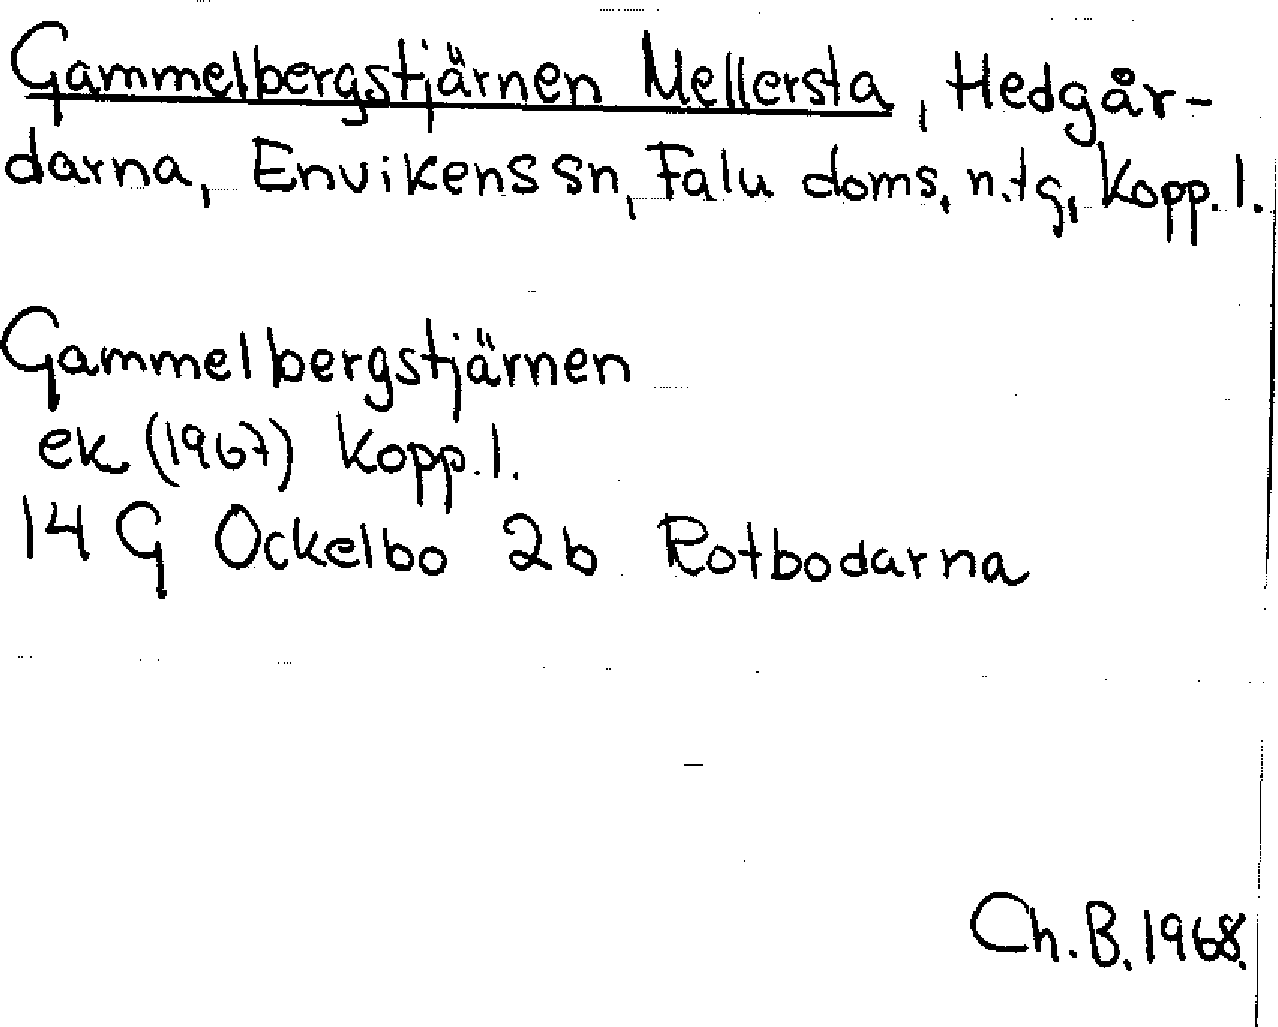 Gammelbergstjärnen Mellersta, Hedgår-
darna, Envikens sn, Falu doms. n. tg, Kopp. l.
Gammelbergstjärnen
ek (1967) Kopp. l.
14 G Ockelbo 2b Rotbodarna
Ch. B. 1968.